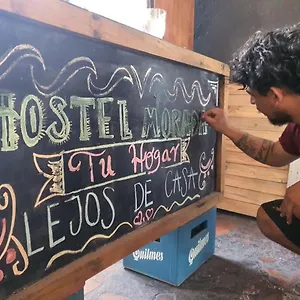 HOSTEL MORENO
Tu Hogar
LEJOS DE CASA
Quilmes
Quilmes